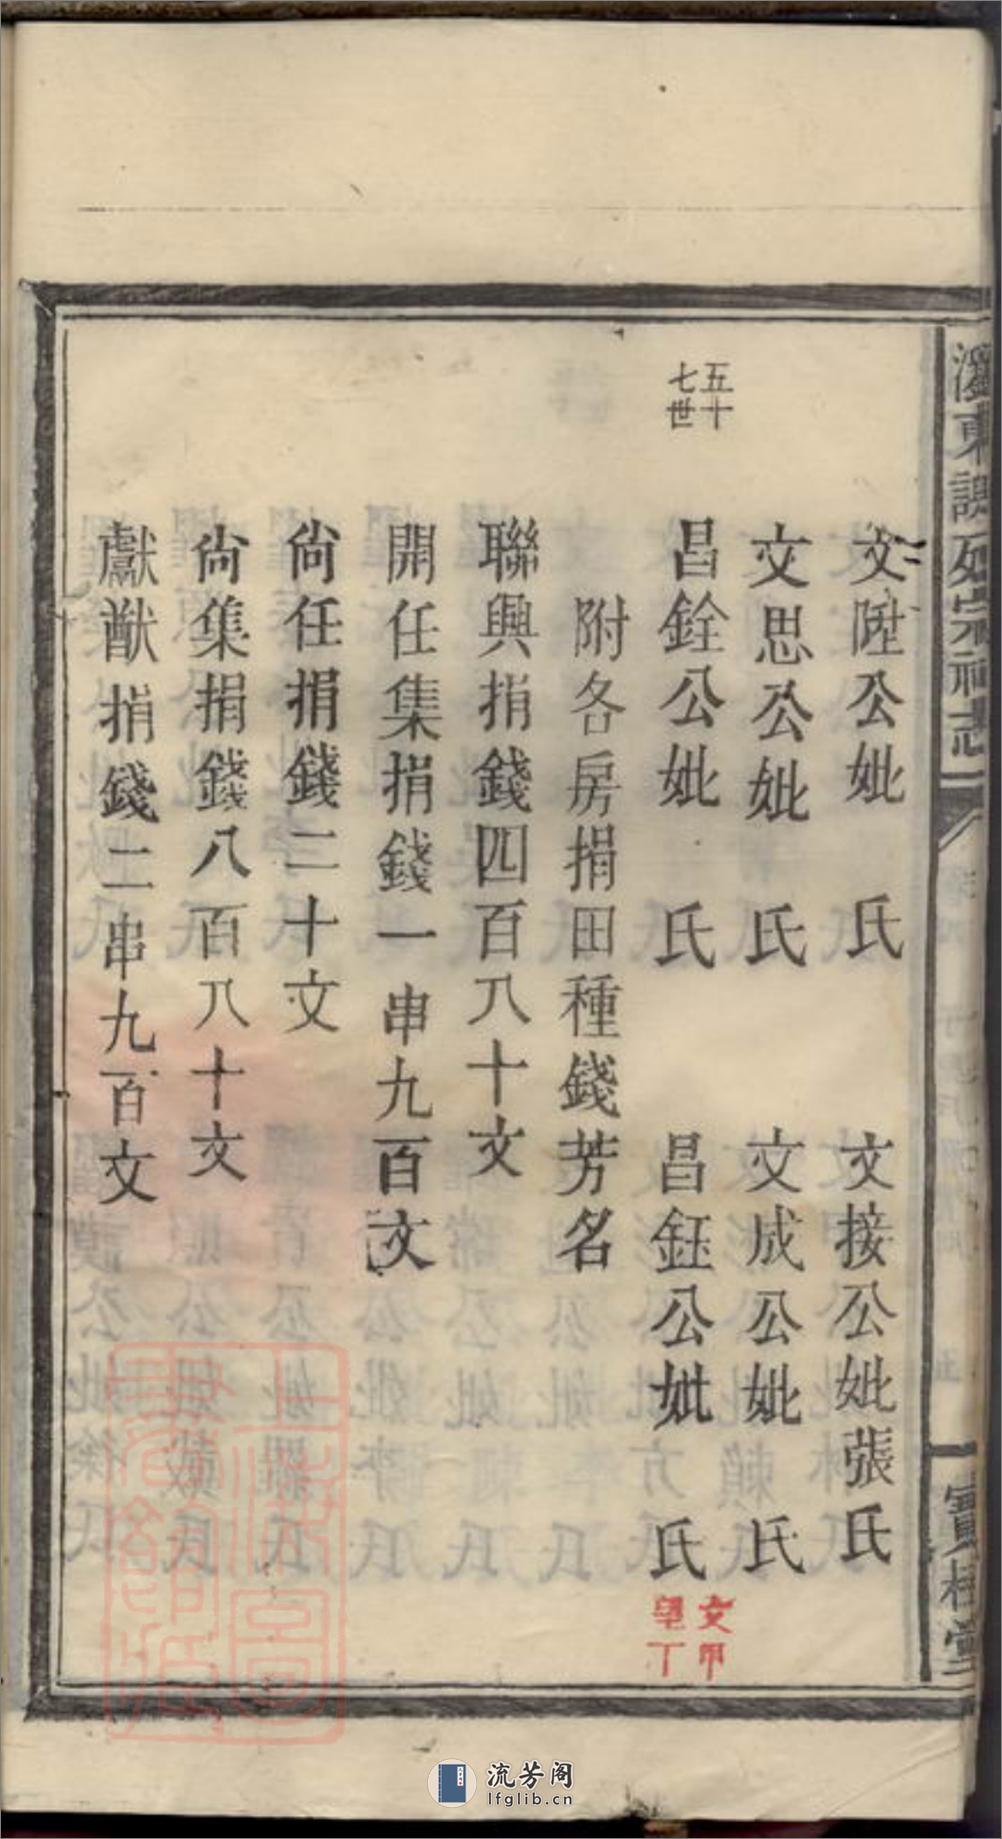 文陞公妣　氏
文接公妣張氏
文思公妣　氏
文成公妣　氏
五十
七世
昌銓公妣　氏
昌鈺公妣　氏
文甲
望丁
附各房捐田種錢芳名
聯興捐錢四百八十文
開任集捐錢一串九百文
尙任捐錢二十文
尙集捐錢八百八十文
獻猷捐錢二串九百文
流芳阁
lfglib.cn